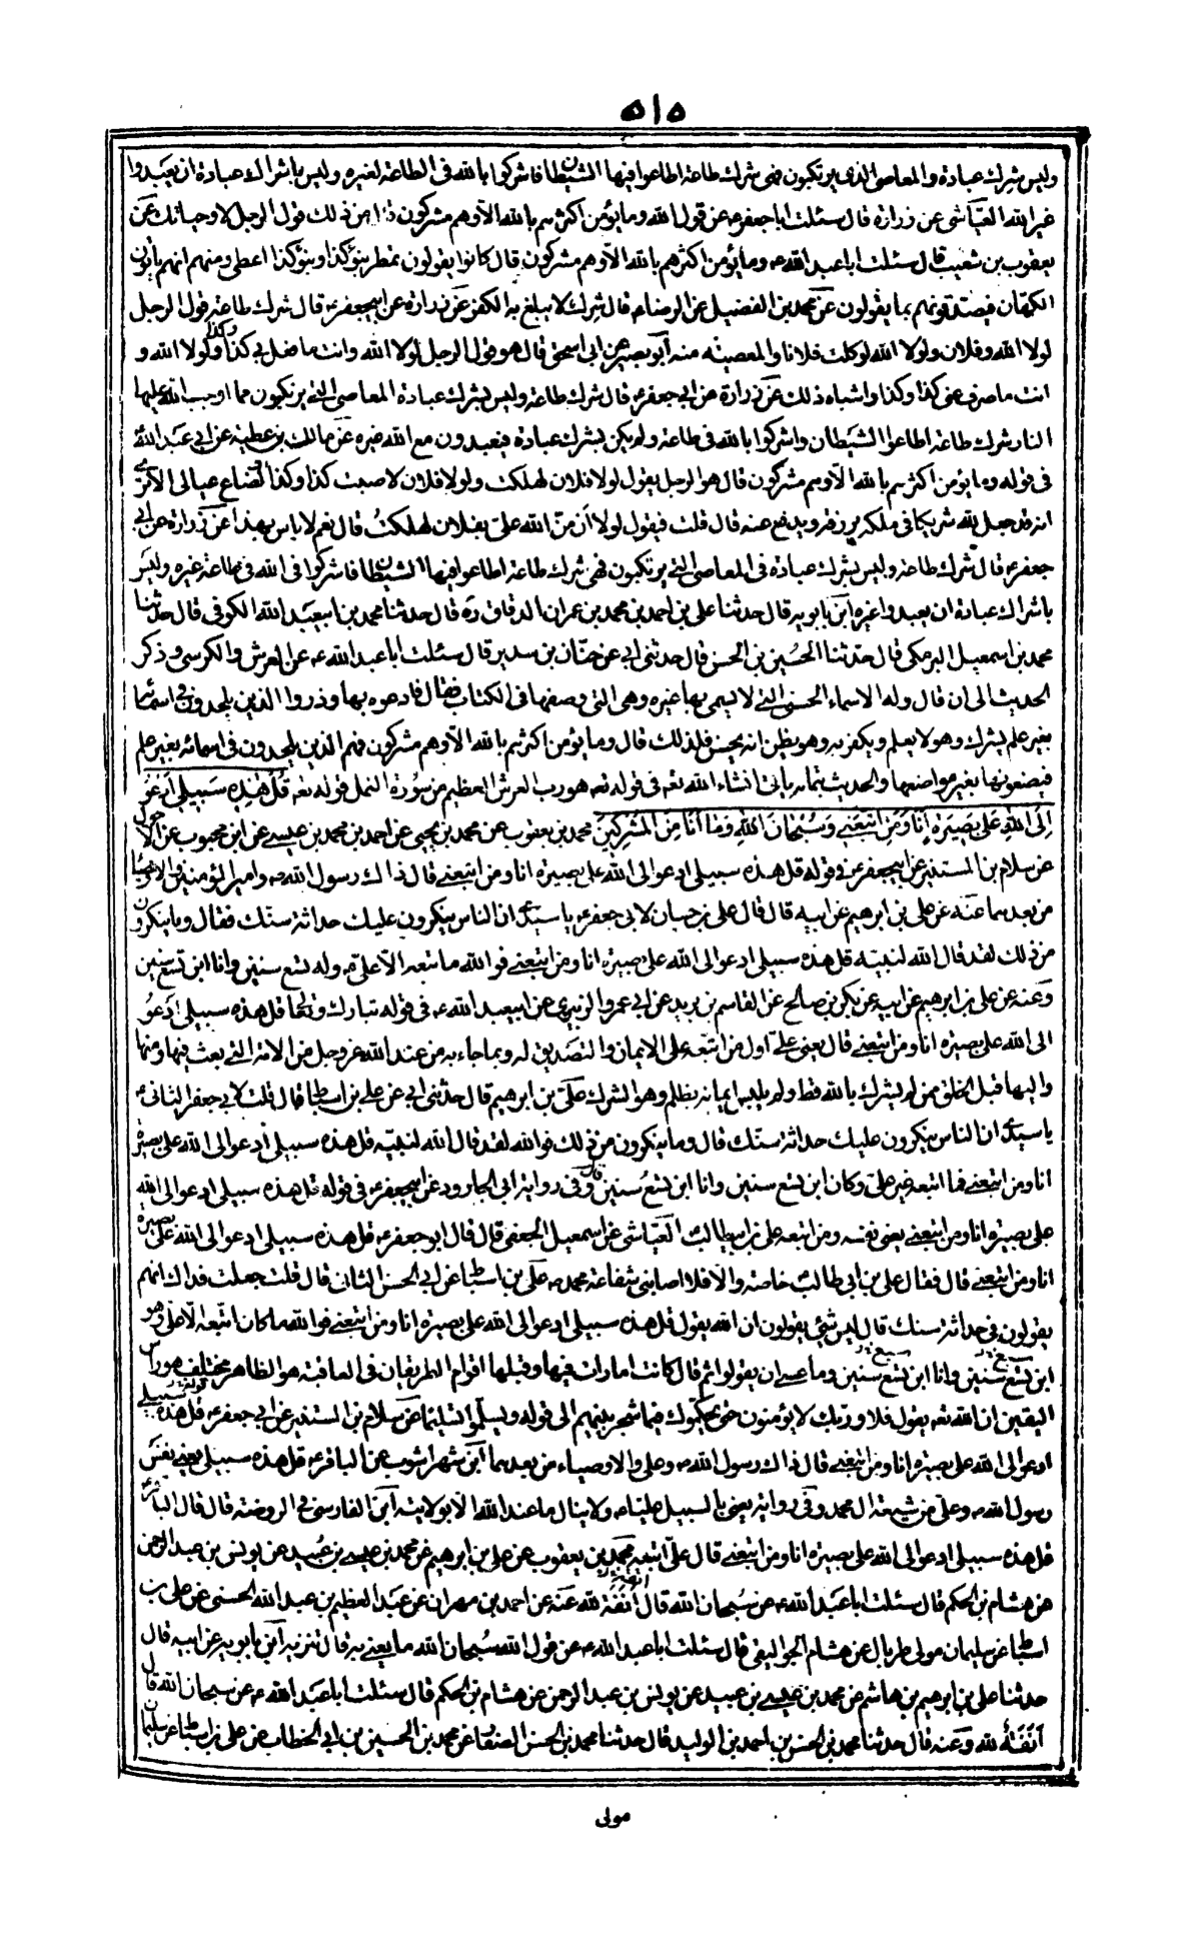 ٥١٥
وليس شرك عبادة والمعاصى الذى يرتكبون فهى شرك طاعة اطاعوا فيها الشيطان فاشركوا بالله فى الطاعة لغيره وليس باشراك عبادة ان يعبدوا
غير الله العيّاشى عن زرارة قال سئلت ابا جعفرع عن قول الله وما يؤمن اكثرهم بالله الّا وهم مشركون قال من ذلك قول الرجل لا وحياتك عن
يعقوب بن شعيب قال سئلت ابا عبد الله ع وما يؤمن اكثرهم بالله الّا وهم مشركون قال كانوا يقولون نمطر بنوء كذا وبنوء كذا لا نعطى ومنهم انهم يأتون
الكهّان فيصدّقونهم بما يقولون عن محمد بن الفضيل عن الرضاع قال شرك لا يبلغ به الكفر عن زرارة عن ابيجعفرع قال شرك طاعة قول الرجل
لولا الله وفلان ولولا الله لوكلت فلانا والمعصية منه ابو بصير عن ابى اسحق قال هو قول الرجل لولا الله وانت ما فعل بى كذا وكذا ولولا الله و
انت ما صرف عنى كذا وكذا واشباه ذلك عن زرارة عن ابى جعفرع قال شرك طاعة وليس بشرك عبادة المعاصى التى يرتكبون مما اوجب الله عليها
النار شرك طاعة اطاعوا الشيطان واشركوا بالله فى طاعة ولم يكن بشرك عبادة فيعبدون مع الله غيره عن مالك بن عطية عن ابى عبد الله ع
فى قوله وما يؤمن اكثرهم بالله الّا وهم مشركون قال هو الرجل يقول لولا فلان لهلكت ولولا فلان لاصبت كذا وكذا ولولا فلان لضاع عيالى الا ترى
انه قد جعل لله شريكا فى ملكه يرزقه ويدفع عنه قال قلت فيقول لولا ان منّ الله علىّ بفلان لهلكت قال نعم لا باس بهذا عن زرارة عن ابى
جعفرع قال شرك طاعة وليس بشرك عبادة فى المعاصى التى يرتكبون فهى شرك طاعة اطاعوا فيها الشيطان فاشركوا فى الله فى طاعة غيره وليس
باشراك عبادة ان يعبدوا غيره ابن بابويه قال حدثنا على بن احمد بن محمد بن عمران الدقاق ره قال حدثنا محمد بن ابيعبد الله الكوفى قال حدثنا
محمد بن اسمعيل البرمكى قال حدثنا الحسين بن الحسن قال حدثنى ابى عن حنان بن سدير قال سئلت ابا عبد الله ع عن العرش والكرسى وذكر
الحديث الى ان قال وله الاسماء الحسنى التى لا يسمى بها غيره وهى التى وصفها فى الكتاب فقال فادعوه بها وذروا الذين يلحدون فى اسمائه
بغير علم يشرك وهو لا يعلم ويكفر به وهو يظن انه يحسن فلذلك قال وما يؤمن اكثرهم بالله الّا وهم مشركون فهم الذين يلحدون فى اسمائه بغير علم
فيضعونها بغير مواضعها والحديث بتمامه يأتى انشاء الله تعه فى قوله تعه هو رب العرش العظيم من سورة النمل قوله تعه قل هذه سبيلى ادعو
الى الله على بصيرة انا ومن اتبعنى وسبحان الله وما انا من المشركين محمد بن يعقوب عن محمد بن يحيى عن احمد بن محمد بن عيسى عن ابن محبوب عن الاحول
عن سلام بن المستنير عن ابيجعفرع فى قوله قل هذه سبيلى ادعو الى الله على بصيرة انا ومن اتبعنى قال ذاك رسول الله ص وامير المؤمنين والاوصياء
من بعدهما عنه عن على بن ابرهيم عن ابيه قال قال على بن حسان لابى جعفرع يا سيدى ان الناس ينكرون عليك حداثة سنك فقال وما ينكرون
من ذلك لقد قال الله لنبيه قل هذه سبيلى ادعو الى الله على بصيرة انا ومن اتبعنى فوالله ما تبعه الّا على ع وله تسع سنين وانا ابن تسع سنين
وعنه عن على بن ابرهيم عن ابيه عن بكر بن صالح عن القاسم بن بريد عن ابى عمرو الزبيرى عن ابيعبد الله ع فى قوله تبارك وتعالى قل هذه سبيلى ادعو
الى الله على بصيرة انا ومن اتبعنى قال يعنى علىّ اول من اتبعه على الايمان والتصديق له وبما جاء به من عند الله عز وجل من الامة التى بعث فيها ومنها
واليها قبل الخلق ممن لم يشرك بالله قط ولم يلبس ايمانه بظلم وهو الشرك على بن ابرهيم قال حدثنى ابى عن على بن اسباط قال قلت لابى جعفر الثانى ع
يا سيدى ان الناس ينكرون عليك حداثة سنك قال وما ينكرون من ذلك فوالله لقد قال الله لنبيه قل هذه سبيلى ادعو الى الله على بصيرة
انا ومن اتبعنى فما اتبعه غير على وكان ابن تسع سنين وانا ابن تسع سنين قال وفى رواية ابى الجارود عن ابيجعفرع فى قوله قل هذه سبيلى ادعو الى الله
على بصيرة انا ومن اتبعنى يعنى نفسه ومن اتبعه على بن ابيطالب العيّاشى عن اسمعيل الجعفى قال قال ابو جعفرع قل هذه سبيلى ادعو الى الله على بصيرة
انا ومن اتبعنى قال فقال على بن ابى طالب خاصة والّا فلا اصابنى شفاعة محمد ص على بن اسباط عن ابى الحسن الثانى قال قلت جعلت فداك انهم
يقولون فى حداثة سنك قال ليس شئ يقولون ان الله يقول قل هذه سبيلى ادعو الى الله على بصيرة انا ومن اتبعنى فوالله ما كان اتبعه الّا على وهو
ابن تسع سنين وانا ابن تسع سنين وما عسى ان يقولوا ثم قال كانت امارات فيها وقبلها اقوام الطريقان فى العاقبة هو الظاهر مختلف هو راس
اليقين ان الله تعه يقول فلا وربك لا يؤمنون حتى يحكّموك فيما شجر بينهم الى قوله ويسلّموا تسليما عن سلام بن المستنير عن ابى جعفرع قل هذه سبيلى
ادعو الى الله على بصيرة انا ومن اتبعنى قال ذاك رسول الله ص وعلى والاوصياء من بعدهما ابن شهراشوب عن الباقرع قل هذه سبيلى يعنى نفسه
رسول الله ص وعلى من شيعة ال محمد وفى رواية يعنى بالسبيل عليّا ع ولا ينال ما عند الله الّا بولايته ابن الفارسى فى الروضة قال قال الباقرع
قل هذه سبيلى ادعو الى الله على بصيرة انا ومن اتبعنى قال علىّ اتبعه محمد بن يعقوب عن على بن ابرهيم عن محمد بن عيسى بن عبيد عن يونس بن عبد الرحمن
عن هشام بن الحكم قال سئلت ابا عبد الله ع عن سبحان الله قال انفة لله عنه عن احمد بن مهران عن عبد العظيم بن عبد الله الحسنى عن على بن
اسباط عن سليمان مولى طربال عن هشام الجواليقى قال سئلت ابا عبد الله ع عن قول الله سبحان الله ما يعنى به قال تنزيه ابن بابويه عن ابيه قال
حدثنا على بن ابرهيم بن هاشم عن محمد بن عيسى بن عبيد عن يونس بن عبد الرحمن عن هشام بن الحكم قال سئلت ابا عبد الله ع عن سبحان الله قال
انفة لله وعنه قال حدثنا محمد بن الحسن بن احمد بن الوليد قال حدثنا محمد بن الحسن الصفار عن محمد بن الحسين بن ابى الخطاب عن على بن اسباط عن سليمان
مولى